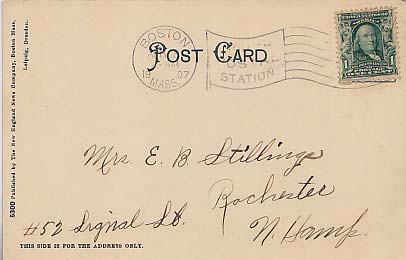 BOSTON
1907
MASS.
POST CARD
STATION
1
Mrs. E. B. Stillings
Rochester
#52 Signal St.
N. Hamp.
THIS SIDE IS FOR THE ADDRESS ONLY.
5300 Published by The New England News Company, Boston Mass.
Leipzig, Dresden.